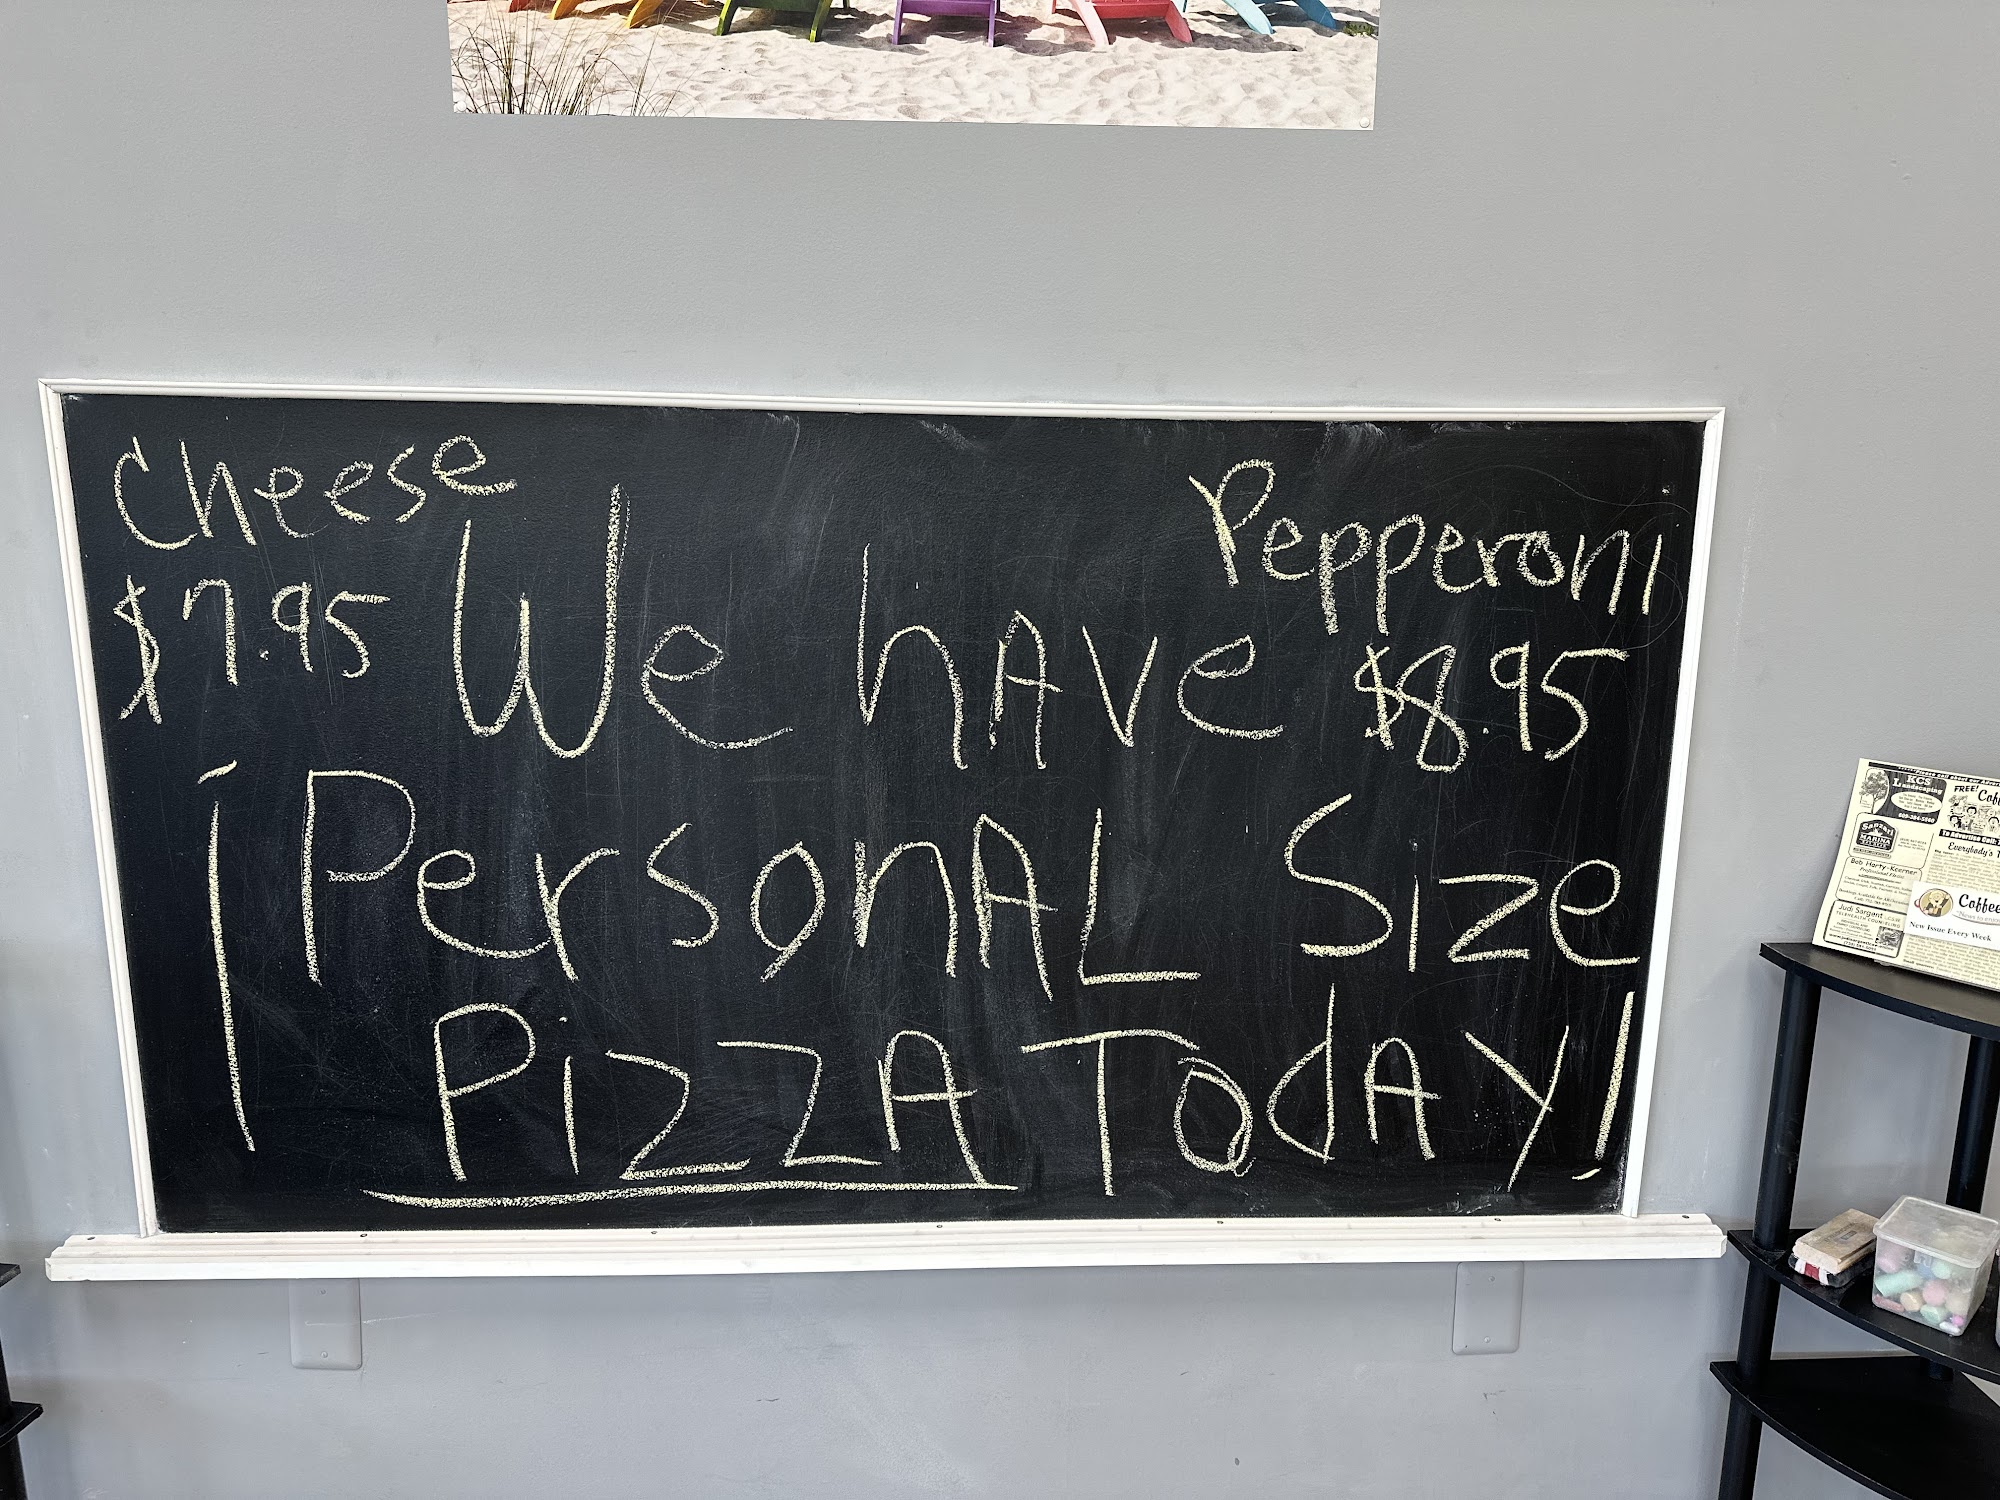 Cheese
$7.95
Pepperoni
$8.95
We hAve
¡PersonAL Size
PizzA TodAy!
KCS
Landscaping
FREE!
Bob Harty-Koerner
Judi Sargent
Everybody's
Coffee
New Issue Every Week